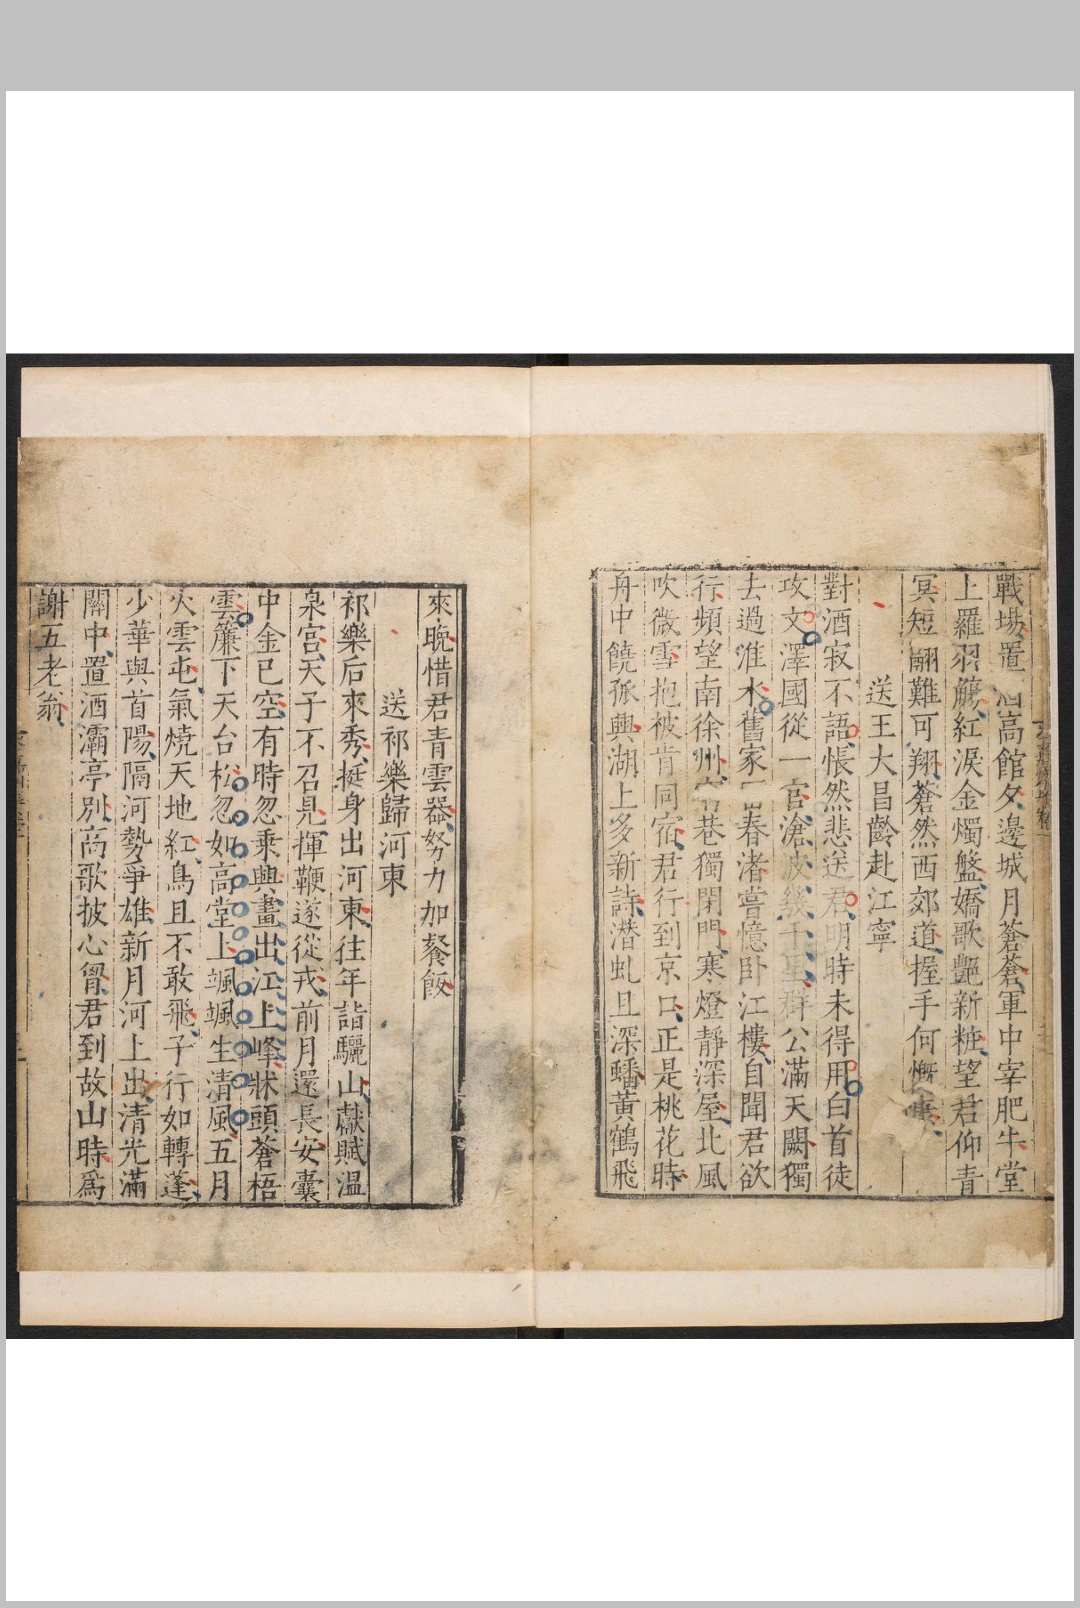 戰場置酒高館夕邊城月蒼蒼軍中宰肥牛堂
上羅羽觴紅淚金燭盤嬌歌艷新粧望君仰青
冥短翮難可翔蒼然西郊道握手何慨慷
送王大昌齡赴江寧
對酒寂不語悵然悲送君明時未得用白首徒
攻文澤國從一官滄波幾千里群公滿天闕獨
去過淮水舊家富春渚嘗憶卧江樓自聞君欲
行頻望南徐州窮巷獨閉門寒燈靜深屋北風
吹微雪抱被肯同宿君行到京口正是桃花時
舟中饒孤興湖上多新詩潛虬且深蟠黃鶴飛
來晚惜君青雲器努力加餐飯
送祁樂歸河東
祁樂后來秀挺身出河東往年詣驪山獻賦溫
泉宮天子不召見揮鞭遂從戎前月還長安囊
中金已空有時忽乘興畫出江上峰牀頭蒼梧
雲簾下天台松忽如高堂上颯颯生清風五月
火雲屯氣燒天地紅鳥且不敢飛子行如轉蓬
少華與首陽隔河勢爭雄新月河上出清光滿
關中置酒灞亭別高歌披心胷君到故山時爲
謝五老翁